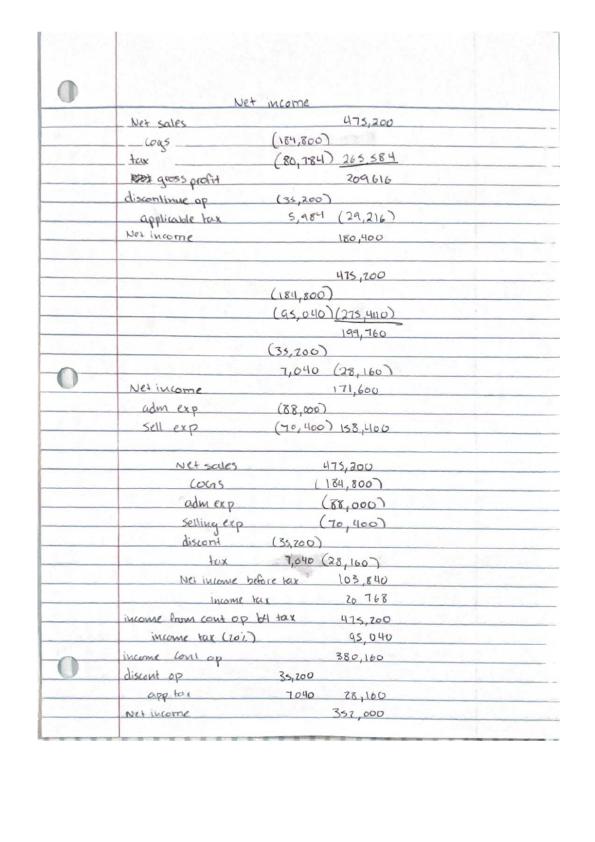 Net income
Net sales 475,200
COGS (184,800)
tax (80,784) 265,584
gross profit 209616
discontinue op (35,200)
applicable tax 5,984 (29,216)
Net income 180,400
475,200
(184,800)
(95,040) (275,440)
199,760
(35,200)
7,040 (28,160)
Net income 171,600
adm exp (88,000)
Sell exp (70,400) 158,400
Net sales 475,200
COGS (184,800)
adm exp (88,000)
Selling exp (70,400)
discont (35,200)
tax 7,040 (28,160)
Net income before tax 103,840
income tax 20 768
income from cont op b4 tax 475,200
income tax (20%) 95,040
income cont op 380,160
discont op 35,200
app tax 7040 28,160
Net income 352,000